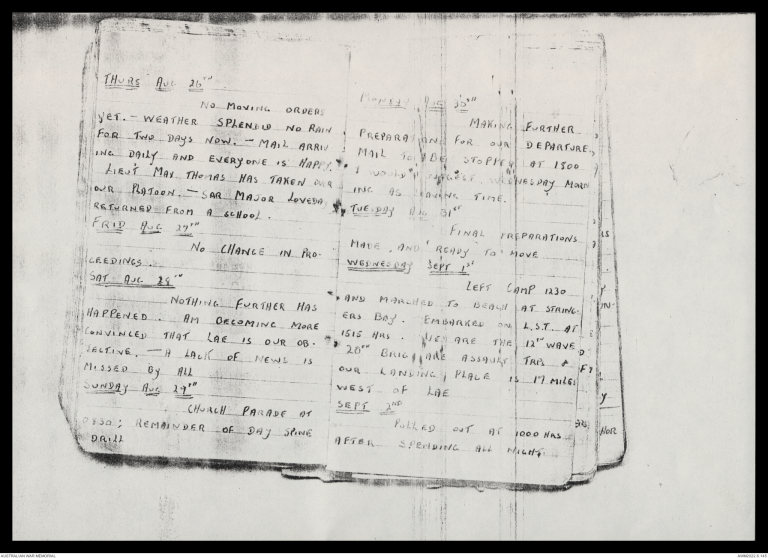 THURS AUG 26TH
NO MOVING ORDERS
YET. — WEATHER SPLENDID NO RAIN
FOR TWO DAYS NOW. — MAIL ARRIV
ING DAILY AND EVERYONE IS HAPPY.
LIEUT MAX THOMAS HAS TAKEN OVR
OUR PLATOON. — SAR MAJOR LOVEDAY
RETURNED FROM A SCHOOL.
FRID AUG 27TH
NO CHANGE IN PRO-
CEEDINGS.
SAT AUG 28TH
NOTHING FURTHER HAS
HAPPENED. AM BECOMING MORE
CONVINCED THAT LAE IS OUR OB-
JECTIVE. — A LACK OF NEWS IS
MISSED BY ALL
SUNDAY AUG 29TH
CHURCH PARADE AT
0930; REMAINDER OF DAY SPINE
DRILL
MONDAY AUG 30TH
MAKING FURTHER
PREPARATIONS FOR OUR DEPARTURE,
MAIL TO BE STOPPED AT 1800
I WOULD SUGGEST WEDNESDAY MORN
ING AS LEAVING TIME.
TUESDAY AUG 31ST
FINAL PREPARATIONS
MADE AND READY TO MOVE
WEDNESDAY SEPT 1ST
LEFT CAMP 1230
AND MARCHED TO BEACH AT STRING-
ERS BAY. EMBARKED ON L.S.T. AT
1515 HRS. ARE THE 12TH WAVE
20TH BRIG ARE ASSAULT TRPS &
OUR LANDING PLACE IS 17 MILES
WEST OF LAE
SEPT 2ND
PULLED OUT AT 1000 HRS
AFTER SPENDING ALL NIGHT
IS
IN-
Y
HOR
AUSTRALIAN WAR MEMORIAL